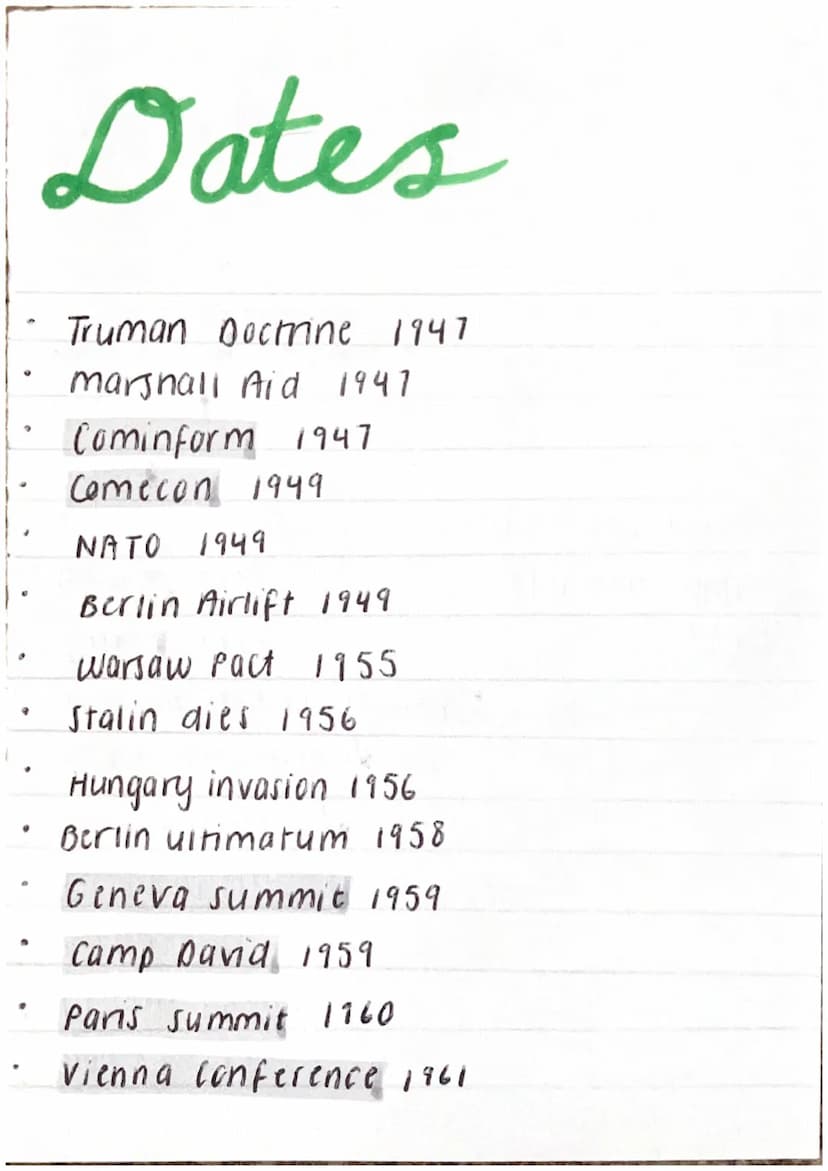 Dates
· Truman Doctrine 1947
· Marshall Aid 1947
· Cominform 1947
· Comecon 1949
· NATO 1949
· Berlin Airlift 1949
· Warsaw Pact 1955
· Stalin dies 1956
· Hungary invasion 1956
· Berlin ultimatum 1958
· Geneva summit 1959
· Camp David 1959
· Paris summit 1960
· Vienna Conference 1961